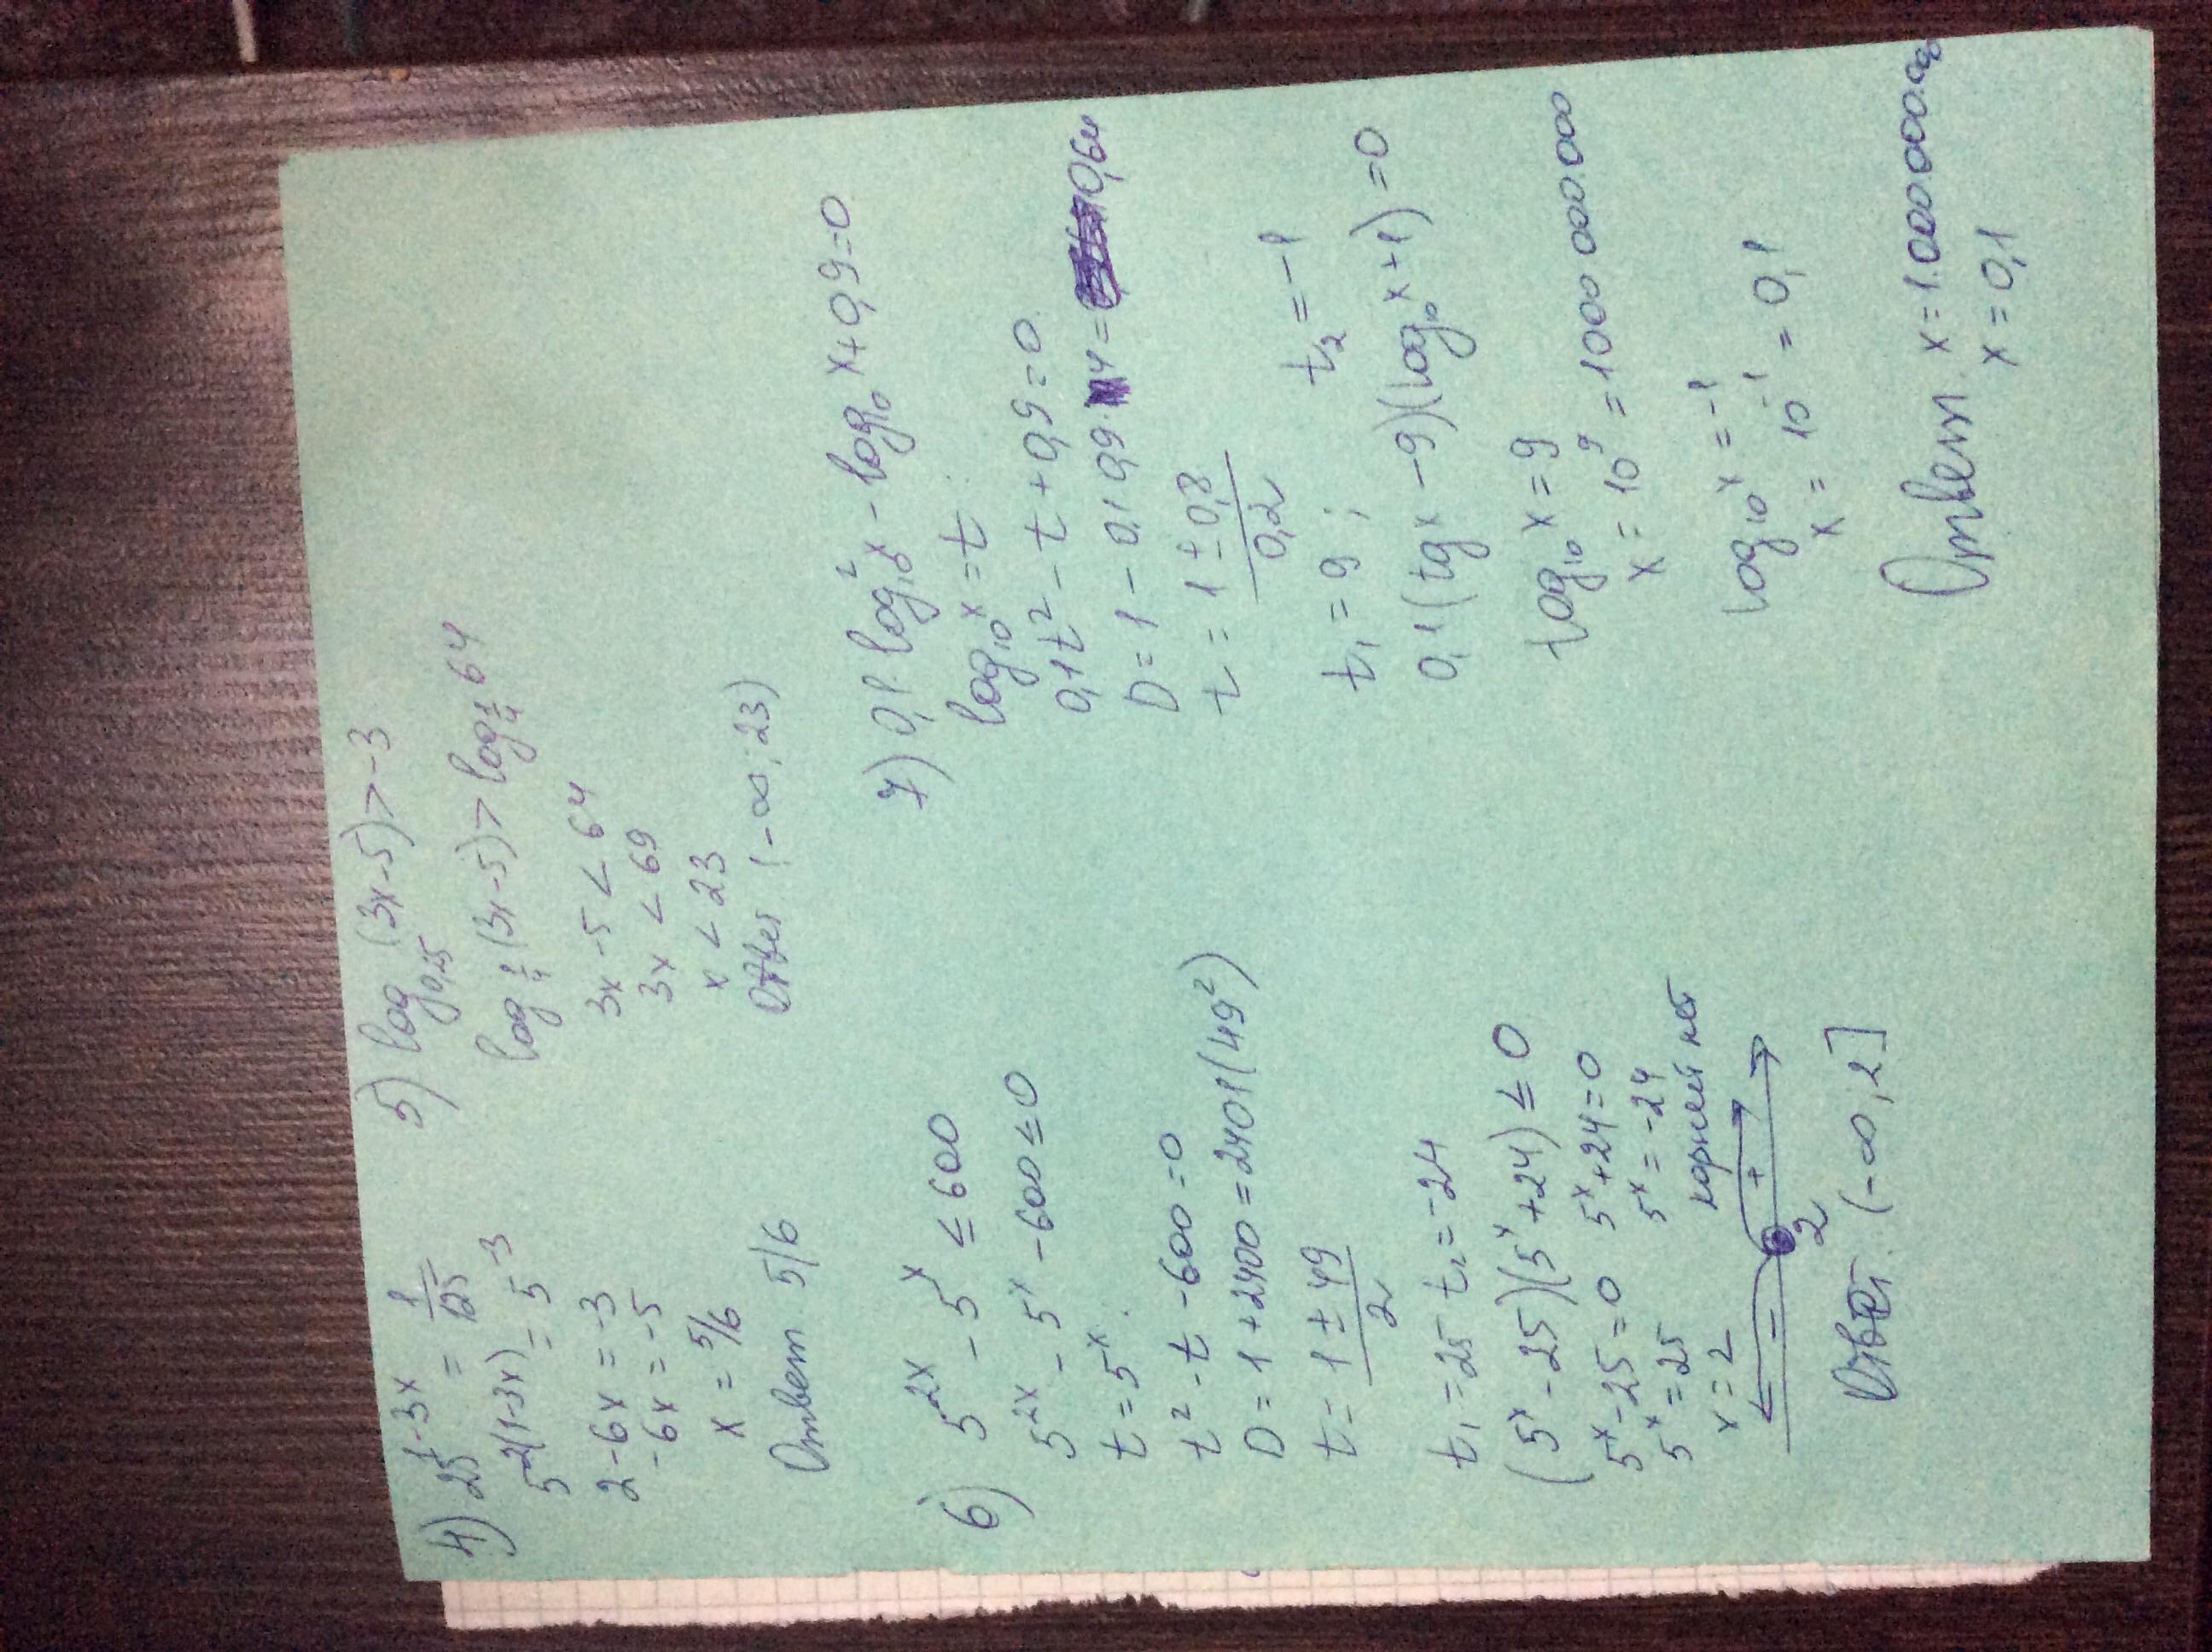 4) 25^{1-3x} = 1/125
5^{2(1-3x)} = 5^{-3}
2-6x = -3
-6x = -5
x = 5/6
Ответ 5/6
5) log_{0,25}(3x-5) > -3
log_{1/4}(3x-5) > log_{1/4} 64
3x-5 < 64
3x < 69
x < 23
Ответ (-∞; 23)
6) 5^{2x} - 5^x ≤ 600
5^{2x} - 5^x - 600 ≤ 0
t = 5^x.
t² - t - 600 = 0
D = 1 + 2400 = 2401 (49²)
t = (1 ± 49)/2
t₁ = 25 t₂ = -24
(5^x - 25)(5^x + 24) ≤ 0
5^x - 25 = 0 5^x + 24 = 0
5^x = 25 5^x = -24
x = 2 корней нет
- +
2
Ответ. (-∞, 2]
7) 0,1· log²_{10} x - log_{10} x + 0,9 = 0
log_{10} x = t
0,1t² - t + 0,9 = 0
D = 1 - 0,1·0,9·4 = 0,64
t = (1 ± 0,8)/0,2
t₁ = 9 ; t₂ = -1
0,1(tg x - 9)(log_{10} x + 1) = 0
log_{10} x = 9
x = 10^9 = 1000 000.000
log_{10} x = -1
x = 10^{-1} = 0,1
Ответ. x = 1.000.000.
x = 0,1